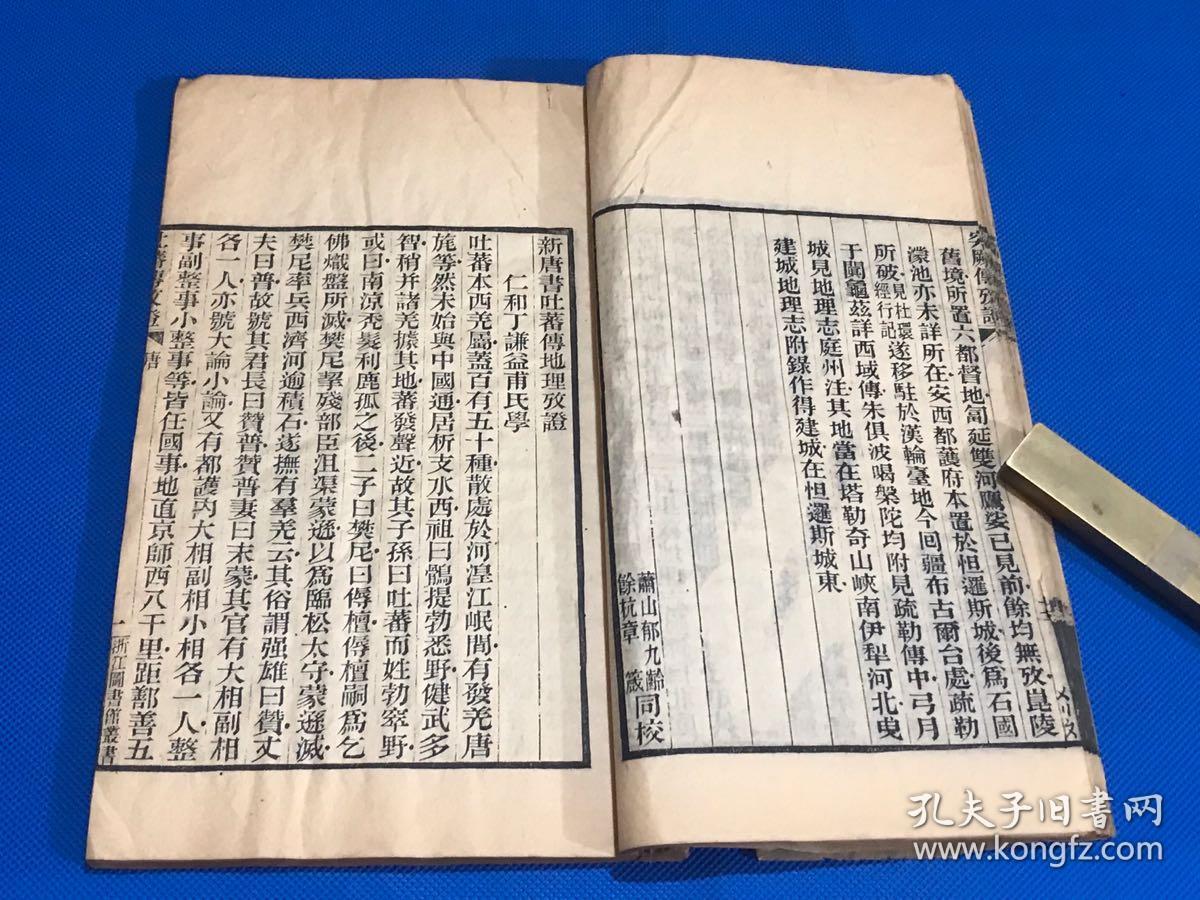 突厥傳攷證
舊境所置六都督地匐延雙河鷹娑已見前餘均無攷崑陵
濛池亦未詳所在安西都護府本置於怛邏斯城後爲石國
所破見杜環經行記遂移駐於漢輪臺地今回疆布古爾台處疏勒
于闐龜茲詳西域傳朱俱波喝槃陀均附見疏勒傳中弓月
城見地理志庭州注其地當在塔勒奇山峽南伊犁河北曳
建城地理志附錄作得建城在怛邏斯城東
蕭山郁九齡
餘杭章箴同校
新唐書吐蕃傳地理攷證
仁和丁謙益甫氏學
吐蕃本西羌屬蓋百有五十種散處於河湟江岷間有發羌唐
旄等然未始與中國通居析支水西祖曰鶻提勃悉野健武多
智稍并諸羌據其地蕃發聲近故其子孫曰吐蕃而姓勃窣野
或曰南涼禿髮利鹿孤之後二子曰樊尼曰傉檀傉檀嗣爲乞
佛熾盤所滅樊尼挈殘部臣沮渠蒙遜以爲臨松太守蒙遜滅
樊尼率兵西濟河逾積石遂撫有羣羌云其俗謂强雄曰贊丈
夫曰普故號其君長曰贊普贊普妻曰末蒙其官有大相副相
各一人亦號大論小論又有都護內大相副相小相各一人整
事副整事小整事等皆任國事地直京師西八千里距鄯善五
吐蕃傳攷證
唐
一
浙江圖書館叢書
孔夫子旧书网
www.kongfz.com